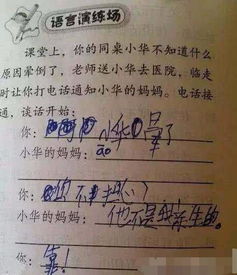 语言演练场
课堂上，你的同桌小华不知道什么
原因晕倒了，老师送小华去医院，临走
时让你打电话通知小华的妈妈。电话接
通，谈话开始：
你：阿阿小华晕了
小华的妈妈：āo
你：你不担心？
小华的妈妈：他不是我亲生的。
你：靠！